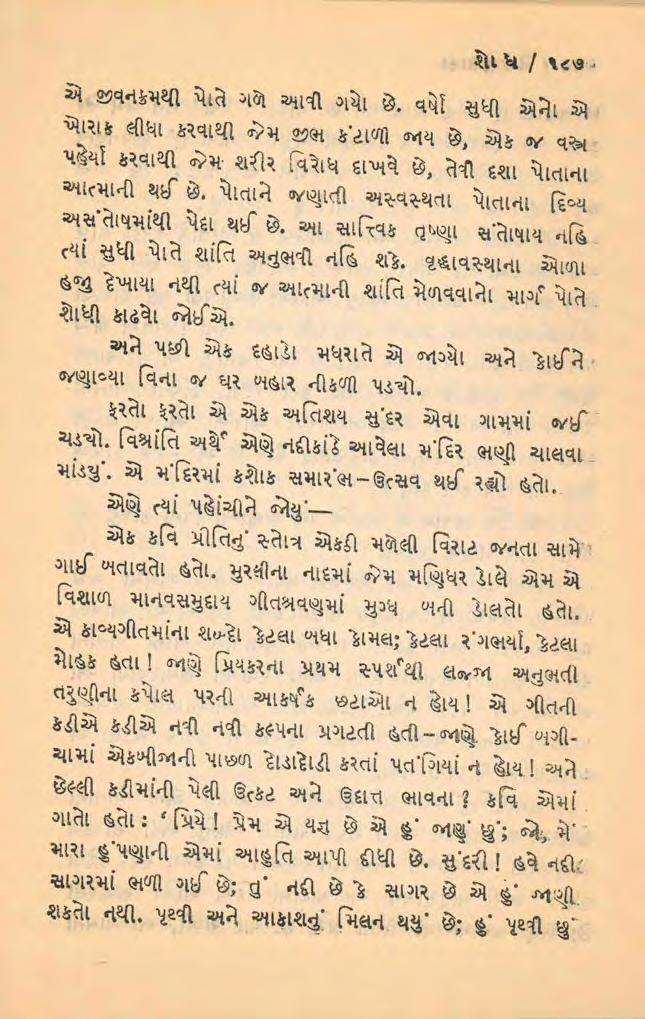 શોધ / ૧૮૭
એ જીવનક્રમથી પોતે ગળે આવી ગયો છે. વર્ષો સુધી એનો એ
ખોરાક લીધા કરવાથી જેમ જીભ કંટાળી જાય છે, એક જ વસ્ત્ર
પહેર્યા કરવાથી જેમ શરીર વિરોધ દાખવે છે, તેવી દશા પોતાના
આત્માની થઈ છે. પોતાને જણાતી અસ્વસ્થતા પોતાના દિવ્ય
અસંતોષમાંથી પેદા થઈ છે. આ સાત્ત્વિક તૃષ્ણા સંતોષાય નહિ
ત્યાં સુધી પોતે શાંતિ અનુભવી નહિ શકે. વૃદ્ધાવસ્થાના ઓળા
હજી દેખાયા નથી ત્યાં જ આત્માની શાંતિ મેળવવાનો માર્ગ પોતે
શોધી કાઢવો જોઈએ.
અને પછી એક દહાડો મધરાતે એ જાગ્યો અને કોઈને
જણાવ્યા વિના જ ઘર બહાર નીકળી પડ્યો.
ફરતો ફરતો એ એક અતિશય સુંદર એવા ગામમાં જઈ
ચડ્યો. વિશ્રાંતિ અર્થે એણે નદીકાંઠે આવેલા મંદિર ભણી ચાલવા
માંડયું. એ મંદિરમાં કશોક સમારંભ–ઉત્સવ થઈ રહ્યો હતો.
એણે ત્યાં પહોંચીને જોયું—
એક કવિ પ્રીતિનું સ્તોત્ર એકઠી મળેલી વિરાટ જનતા સામે
ગાઈ બતાવતો હતો. મુરલીના નાદમાં જેમ મણિધર ડોલે એમ એ
વિશાળ માનવસમુદાય ગીતશ્રવણમાં મુગ્ધ બની ડોલતો હતો.
એ કાવ્યગીતમાંના શબ્દો કેટલા બધા કોમલ; કેટલા રંગભર્યા, કેટલા
મોહક હતા! જાણે પ્રિયકરના પ્રથમ સ્પર્શથી લજ્જા અનુભતી
તરુણીના કપોલ પરની આકર્ષક છટાઓ ન હોય! એ ગીતની
કડીએ કડીએ નવી નવી કલ્પના પ્રગટતી હતી–જાણે કોઈ બગી-
ચામાં એકબીજાની પાછળ દોડાદોડી કરતાં પતંગિયાં ન હોય! અને
છેલ્લી કડીમાંની પેલી ઉત્કટ અને ઉદાત્ત ભાવના? કવિ એમાં
ગાતો હતો: 'પ્રિયે! પ્રેમ એ યજ્ઞ છે એ હું જાણું છું; જો, મેં
મારા હુંપણાની એમાં આહુતિ આપી દીધી છે. સુંદરી! હવે નદી
સાગરમાં ભળી ગઈ છે; તું નદી છે કે સાગર છે એ હું જાણી
શકતો નથી. પૃથ્વી અને આકાશનું મિલન થયું છે; હું પૃથ્વી છું